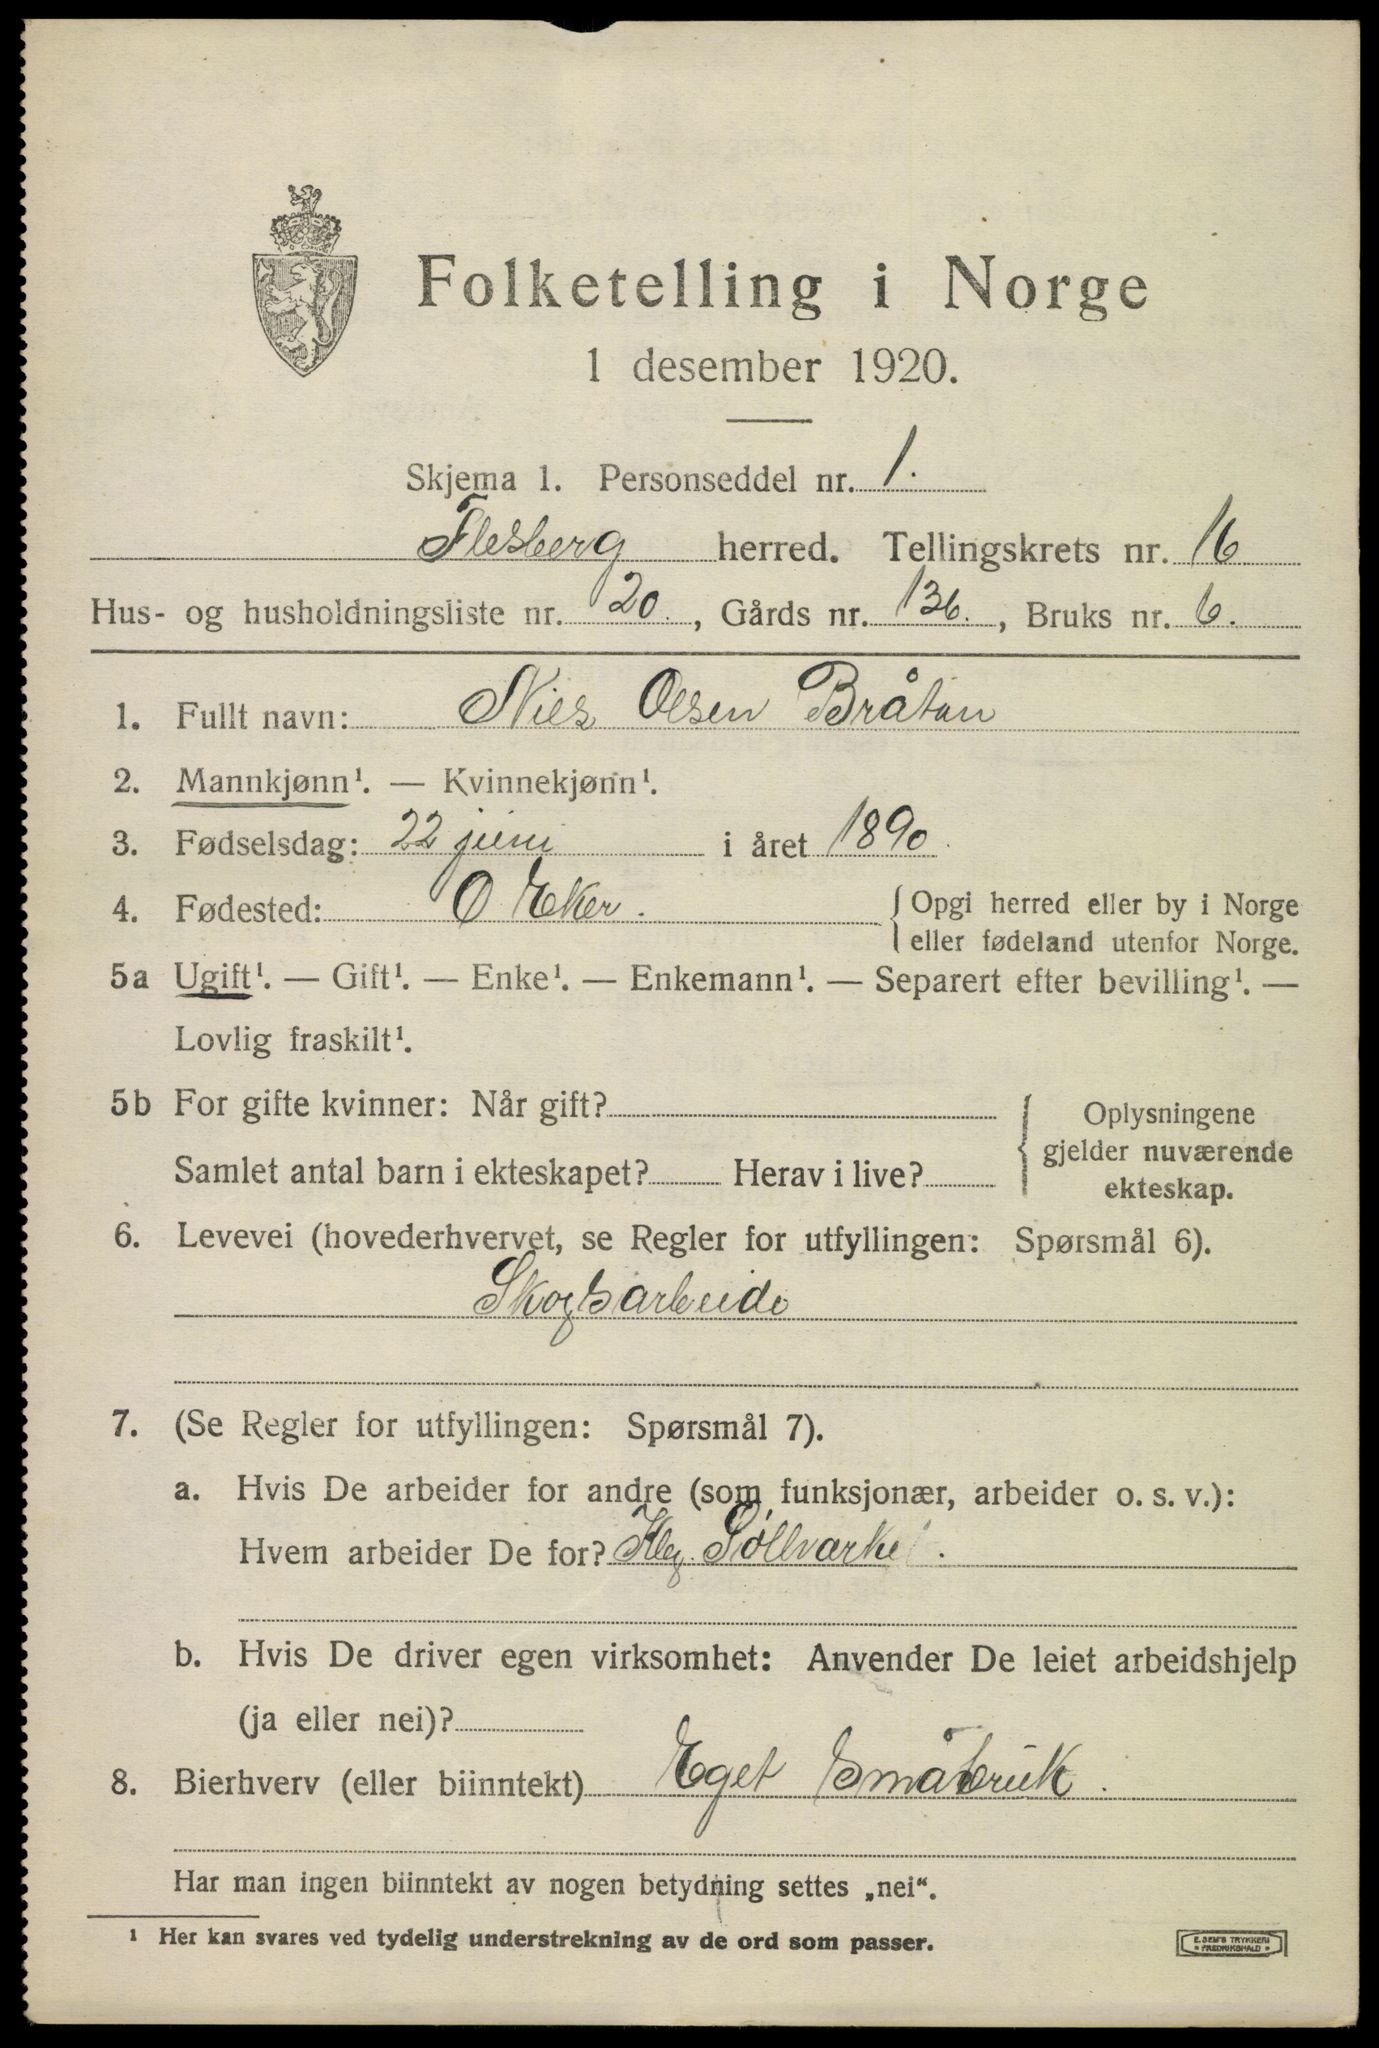 Folketelling i Norge
1 desember 1920.
Skjema 1. Personseddel nr. 1.
Flesberg herred. Tellingskrets nr. 16
Hus- og husholdningsliste nr. 20., Gårds nr. 136., Bruks nr. 6.
1. Fullt navn: Niels Olsen Bråtan
2. Mannkjønn¹. — Kvinnekjønn¹.
3. Fødselsdag: 22 juni i året 1890
4. Fødested: Ø Eker. { Opgi herred eller by i Norge
eller fødeland utenfor Norge.
5a Ugift¹. — Gift¹. — Enke¹. — Enkemann¹. — Separert efter bevilling¹. —
Lovlig fraskilt¹.
5b For gifte kvinner: Når gift?
Samlet antal barn i ekteskapet? Herav i live?
{ Oplysningene
gjelder nuværende
ekteskap.
6. Levevei (hovederhvervet, se Regler for utfyllingen: Spørsmål 6).
Skogsarbeide
7. (Se Regler for utfyllingen: Spørsmål 7).
a. Hvis De arbeider for andre (som funksjonær, arbeider o. s. v.):
Hvem arbeider De for? Kbg. Søllværke.
b. Hvis De driver egen virksomhet: Anvender De leiet arbeidshjelp
(ja eller nei)?
8. Bierhverv (eller biinntekt) Eget Småbruk.
Har man ingen biinntekt av nogen betydning settes „nei“.
¹ Her kan svares ved tydelig understrekning av de ord som passer.
E. SEM'S TRYKKERI
FREDRIKSHALD